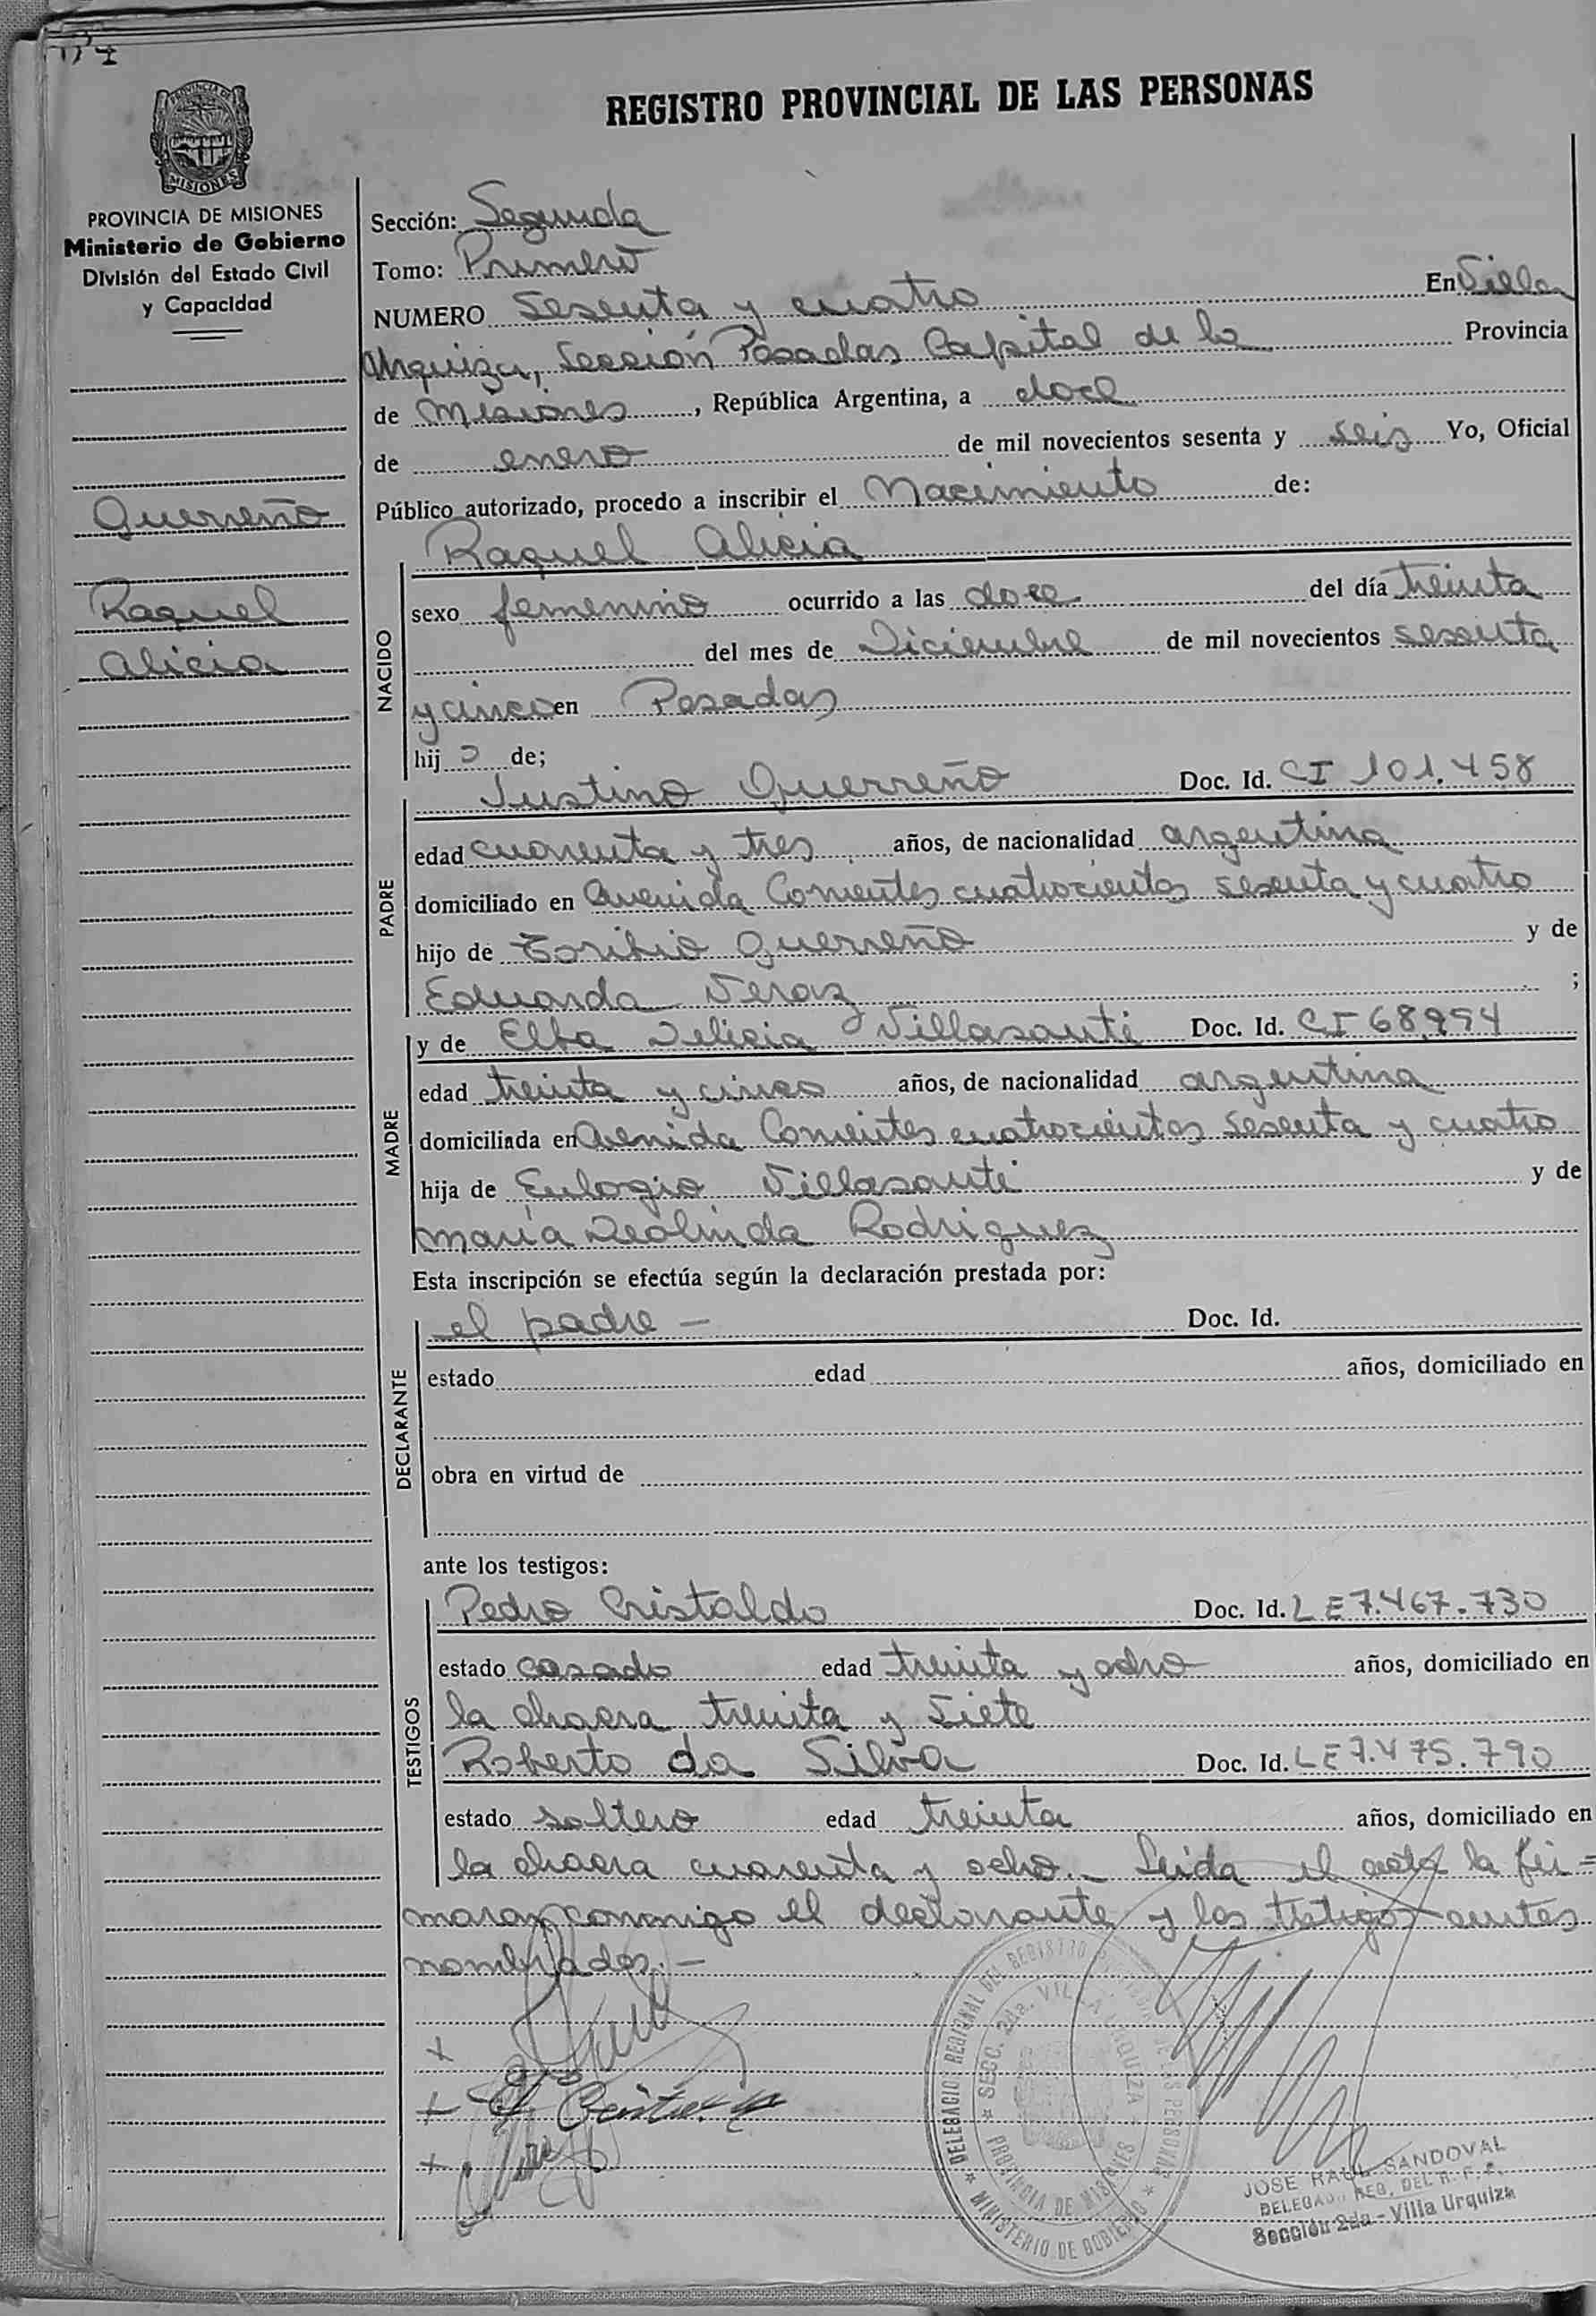 REGISTRO PROVINCIAL DE LAS PERSONAS
PROVINCIA DE MISIONES
Ministerio de Gobierno
División del Estado Civil
y Capacidad
Guerreño
Raquel
Alicia
Sección: Segunda
Tomo: Primero
NUMERO Sesenta y cuatro En Villa
Urquiza, Sección Posadas Capital de la Provincia
de Misiones, República Argentina, a doce
de enero de mil novecientos sesenta y seis Yo, Oficial
Público autorizado, procedo a inscribir el Nacimiento de:
NACIDO
Raquel Alicia
sexo femenino ocurrido a las doce del día treinta
del mes de Diciembre de mil novecientos sesenta
y cinco en Posadas
hij a de;
PADRE
Justino Guerreño Doc. Id. CI 101.458
edad cuarenta y tres años, de nacionalidad argentina
domiciliado en Avenida Corrientes cuatrocientos sesenta y cuatro
hijo de Toribio Guerreño y de
Eduarda Veraz ;
MADRE
y de Elba Delicia Villasanti Doc. Id. CI 68.994
edad treinta y cinco años, de nacionalidad argentina
domiciliada en Avenida Corrientes cuatrocientos sesenta y cuatro
hija de Eulogio Villasanti y de
María Deolinda Rodriguez
Esta inscripción se efectúa según la declaración prestada por:
DECLARANTE
el padre — Doc. Id.
estado edad años, domiciliado en
obra en virtud de
ante los testigos:
TESTIGOS
Pedro Cristaldo Doc. Id. LE 7.467.730
estado casado edad treinta y ocho años, domiciliado en
la chacra treinta y siete
Roberto da Silva Doc. Id. LE 7.475.790
estado soltero edad treinta años, domiciliado en
la chacra cuarenta y ocho.- Leida el acta la fir=
maron conmigo el declarante y los testigos antes
nombrados.-
DELEGACIO REGIONAL DEL REGISTRO PROVINCIAL DE LAS PERSONAS
SECC. 2da. VILLA URQUIZA
PROVINCIA DE MISIONES
MINISTERIO DE GOBIERNO
JOSE RAUL SANDOVAL
DELEGADO REG. DEL R. P. P.
Sección 2da - Villa Urquiza